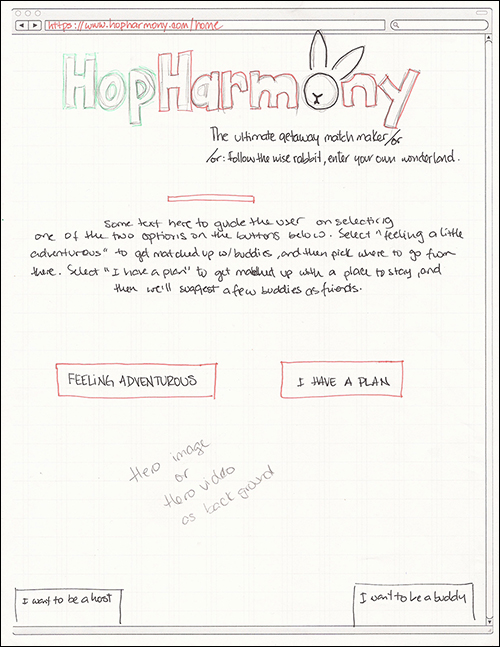 https://www.hopharmony.com/home
HopHarmony
The ultimate getaway match maker/or
/or: Follow the wise rabbit, enter your own wonderland.
some text here to guide the user on selecting
one of the two options on the buttons below. Select "feeling a little
adventurous" to get matched up w/buddies, and then pick where to go from
there. Select "I have a plan" to get matched up with a place to stay, and
then we'll suggest a few buddies as friends.
FEELING ADVENTUROUS
I HAVE A PLAN
Hero image
or
Hero video
as background
I want to be a host
I want to be a buddy